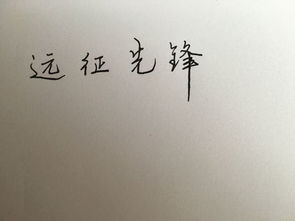 远征先锋